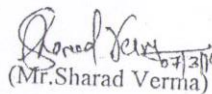 Sharad Verma
(Mr.Sharad Verma)